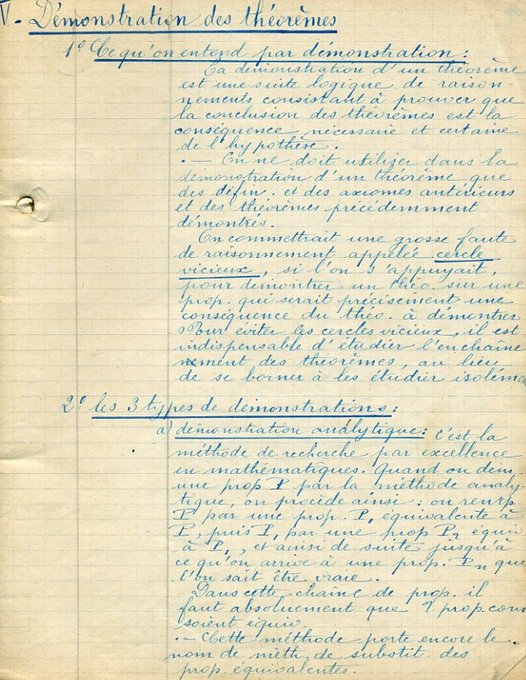 V. Démonstration des théorèmes
1º Ce qu'on entend par démonstration :
La démonstration d'un théorème
est une suite logique de raison-
nements consistant à prouver que
la conclusion des théorèmes est la
conséquence nécessaire et certaine
de l'hypothèse.
.— On ne doit utiliser dans la
démonstration d'un théorème que
des défin. et des axiomes antérieurs
et des théorèmes précédemment
démontrés.
On commettrait une grosse faute
de raisonnement appelée cercle
vicieux, si l'on s'appuyait,
pour démontrer un théo. sur une
prop. qui serait précisément une
conséquence du théo. à démontrer
Pour éviter les cercles vicieux, il est
indispensable d'étudier l'enchaîne
nement des théorèmes, au lieu
de se borner à les étudier isoléme
2º les 3 types de démonstrations :
a) démonstration analytique : C'est la
méthode de recherche par excellence
en mathématiques. Quand on dém.
une prop P par la méthode analy-
tique, on procède ainsi : on remp.
P par une prop. P, équivalente à
P, puis P, par une prop P2 équiv
à P1, et ainsi de suite jusqu'à
ce qu'on arrive à une prop. Pn que
l'on sait être vraie.
Dans cette chaîne de prop. il
faut absoluement que prop. con
soient équiv.
.— Cette méthode porte encore le
nom de méth. de substit. des
prop. équivalentes.